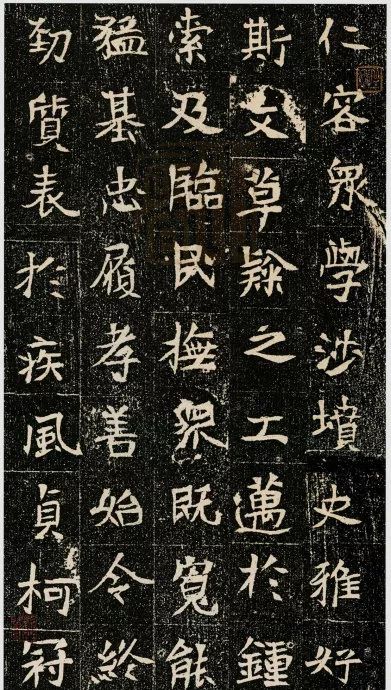 仁容眾學涉墳史雅好
斯文草隸之工邁於鍾
索及臨民撫眾既寬能
猛基忠履孝善始令終
勁質表於疾風貞柯冠